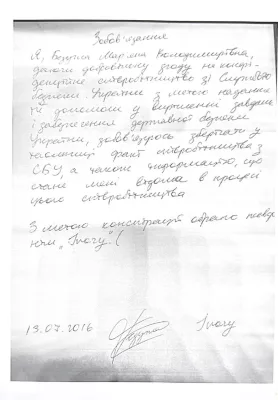 Зобов'язання
Я, Безугла Мар'яна Володимирівна,
даю добровільну згоду на конфі-
денційне співробітництво зі Службою
безпеки України з метою надання
їй допомоги у вирішенні завдань
із забезпечення державної безпеки
України, зобов'язуюсь зберігати у
таємниці факт співробітництва з
СБУ, а також інформацію, що
стане мені відома в процесі
цього співробітництва
З метою конспірації обираю псевдо-
нім "Ivory".
13.07.2016 Ivory